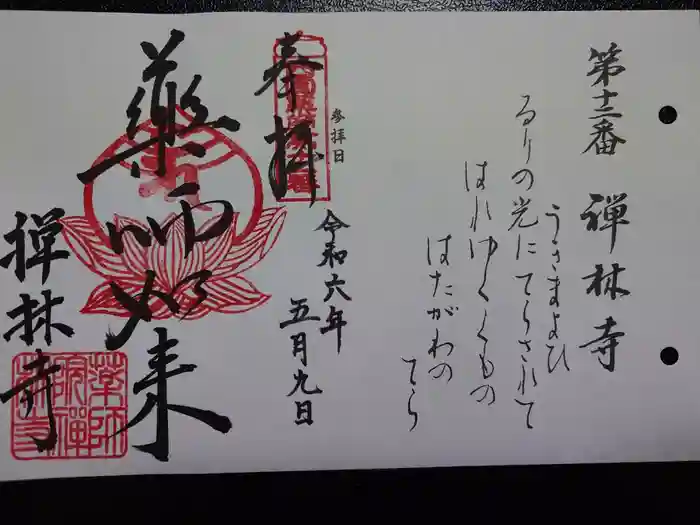 第十二番 禅林寺
うきまよひ
るりの光にてらされて
はれゆくくもの
はたがわの
てら
参拝日
令和六年
五月九日
奉拝
薬師如来
禅林寺